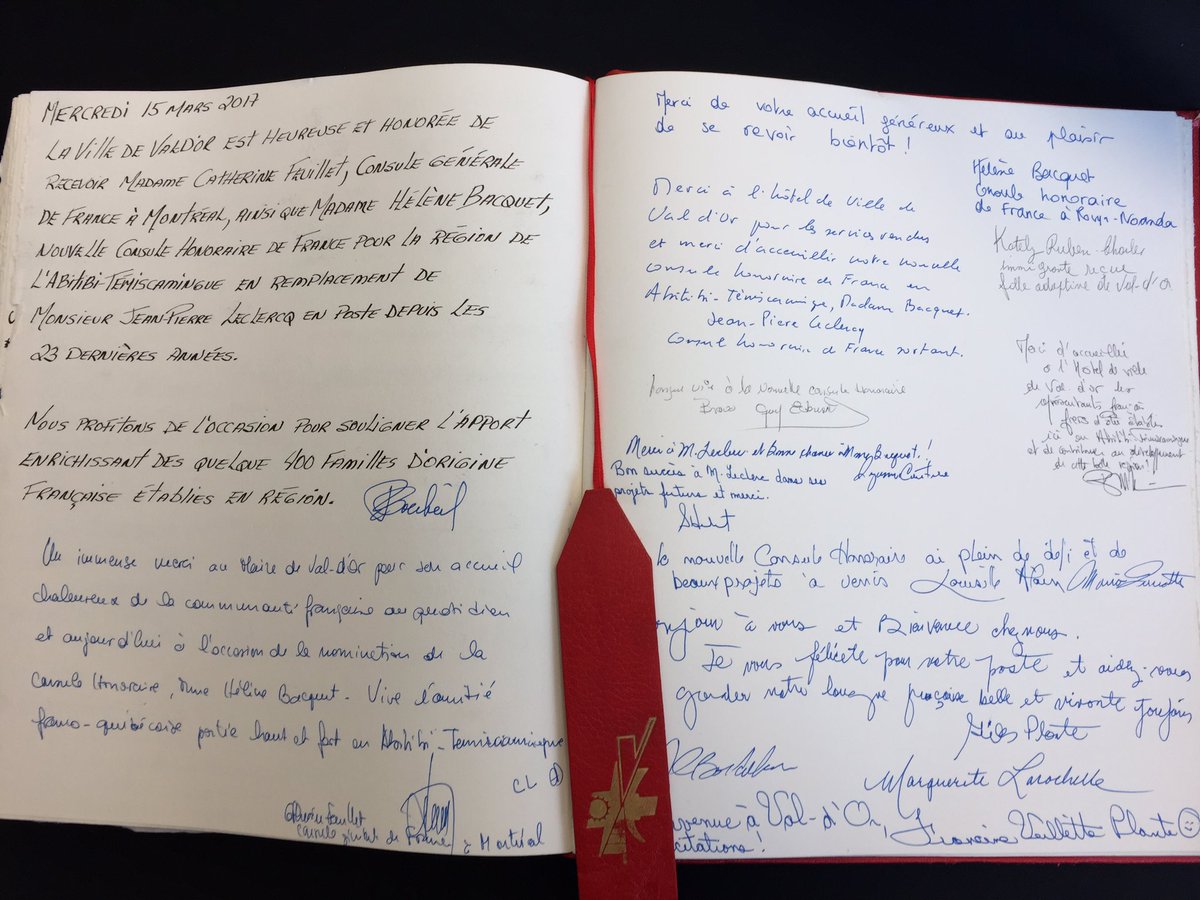 MERCREDI 15 MARS 2017
LA VILLE DE VAL D'OR EST HEUREUSE ET HONORÉE DE
RECEVOIR MADAME CATHERINE FEUILLET, CONSULE GÉNÉRALE
DE FRANCE À MONTRÉAL, AINSI QUE MADAME HÉLÈNE BACQUET,
NOUVELLE CONSULE HONORAIRE DE FRANCE POUR LA RÉGION DE
L'ABITIBI-TÉMISCAMINGUE EN REMPLACEMENT DE
MONSIEUR JEAN-PIERRE LECLERCQ EN POSTE DEPUIS LES
23 DERNIÈRES ANNÉES.
NOUS PROFITONS DE L'OCCASION POUR SOULIGNER L'APPORT
ENRICHISSANT DES QUELQUE 400 FAMILLES D'ORIGINE
FRANÇAISE ÉTABLIES EN RÉGION.
Un immense merci au Maire de Val-d'Or pour son accueil
chaleureux de la communauté française au quotidien
et aujourd'hui à l'occasion de la nomination de la
Consule Honoraire, Mme Hélène Bacquet - Vive l'amitié
franco-québécoise portée haut et fort en Abitibi-Temiscamingue
CL
Catherine Feuillet
Consule générale de France
à Montréal
Merci de votre accueil généreux et au plaisir
de se revoir bientôt !
Hélène Bacquet
Consule honoraire
de France à Rouyn-Noranda
Merci à l'hôtel de ville de
Val d'Or pour les services rendus
et merci d'acceuillir notre nouvelle
consule honoraire de France en
Abitibi-Témiscamingue, Madame Bacquet.
Jean-Pierre Leclercq
Consul honoraire de France sortant.
Ruben-Charles
immigrante reçue
fille adoptive de Val-d'Or
Merci d'accueillir
à l'Hôtel de ville
de Val d'or les
représentants français
fiers d'être établis
ici en Abitibi Témiscamingue
et de contribuer au développement
de cette belle région !
longue vie à la nouvelle consule Honoraire
Bravo Guy
Merci à M. Leclerc et bonne chance à Bacquet !
Bon succès à M. Leclerc dans ses
projets future et merci.
nouvelle Consule Honoraire ai plein de défi et de
beaux projets à venir
à vous et Bienvenue chez nous.
Je vous félicite pour votre poste et aidez-nous
garder notre langue française belle et vivante toujours
Gilles Plante
Marguerite Larochelle
venue à Val-d'Or,
citations !
Francine Veillette Plante